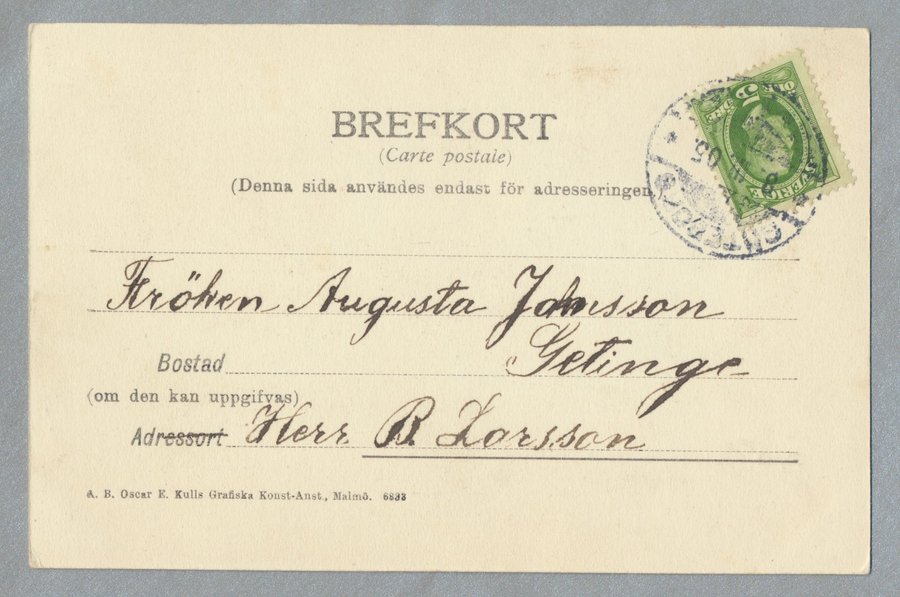 BREFKORT
(Carte postale)
(Denna sida användes endast för adresseringen.)
Fröken Augusta Johnsson
Getinge
Bostad
(om den kan uppgifvas)
Adressort Herr. B. Larsson
A. B. Oscar E. Kulls Grafiska Konst-Anst., Malmö. 6833
5
ÖRE
ÖRE
SVERIGE
05